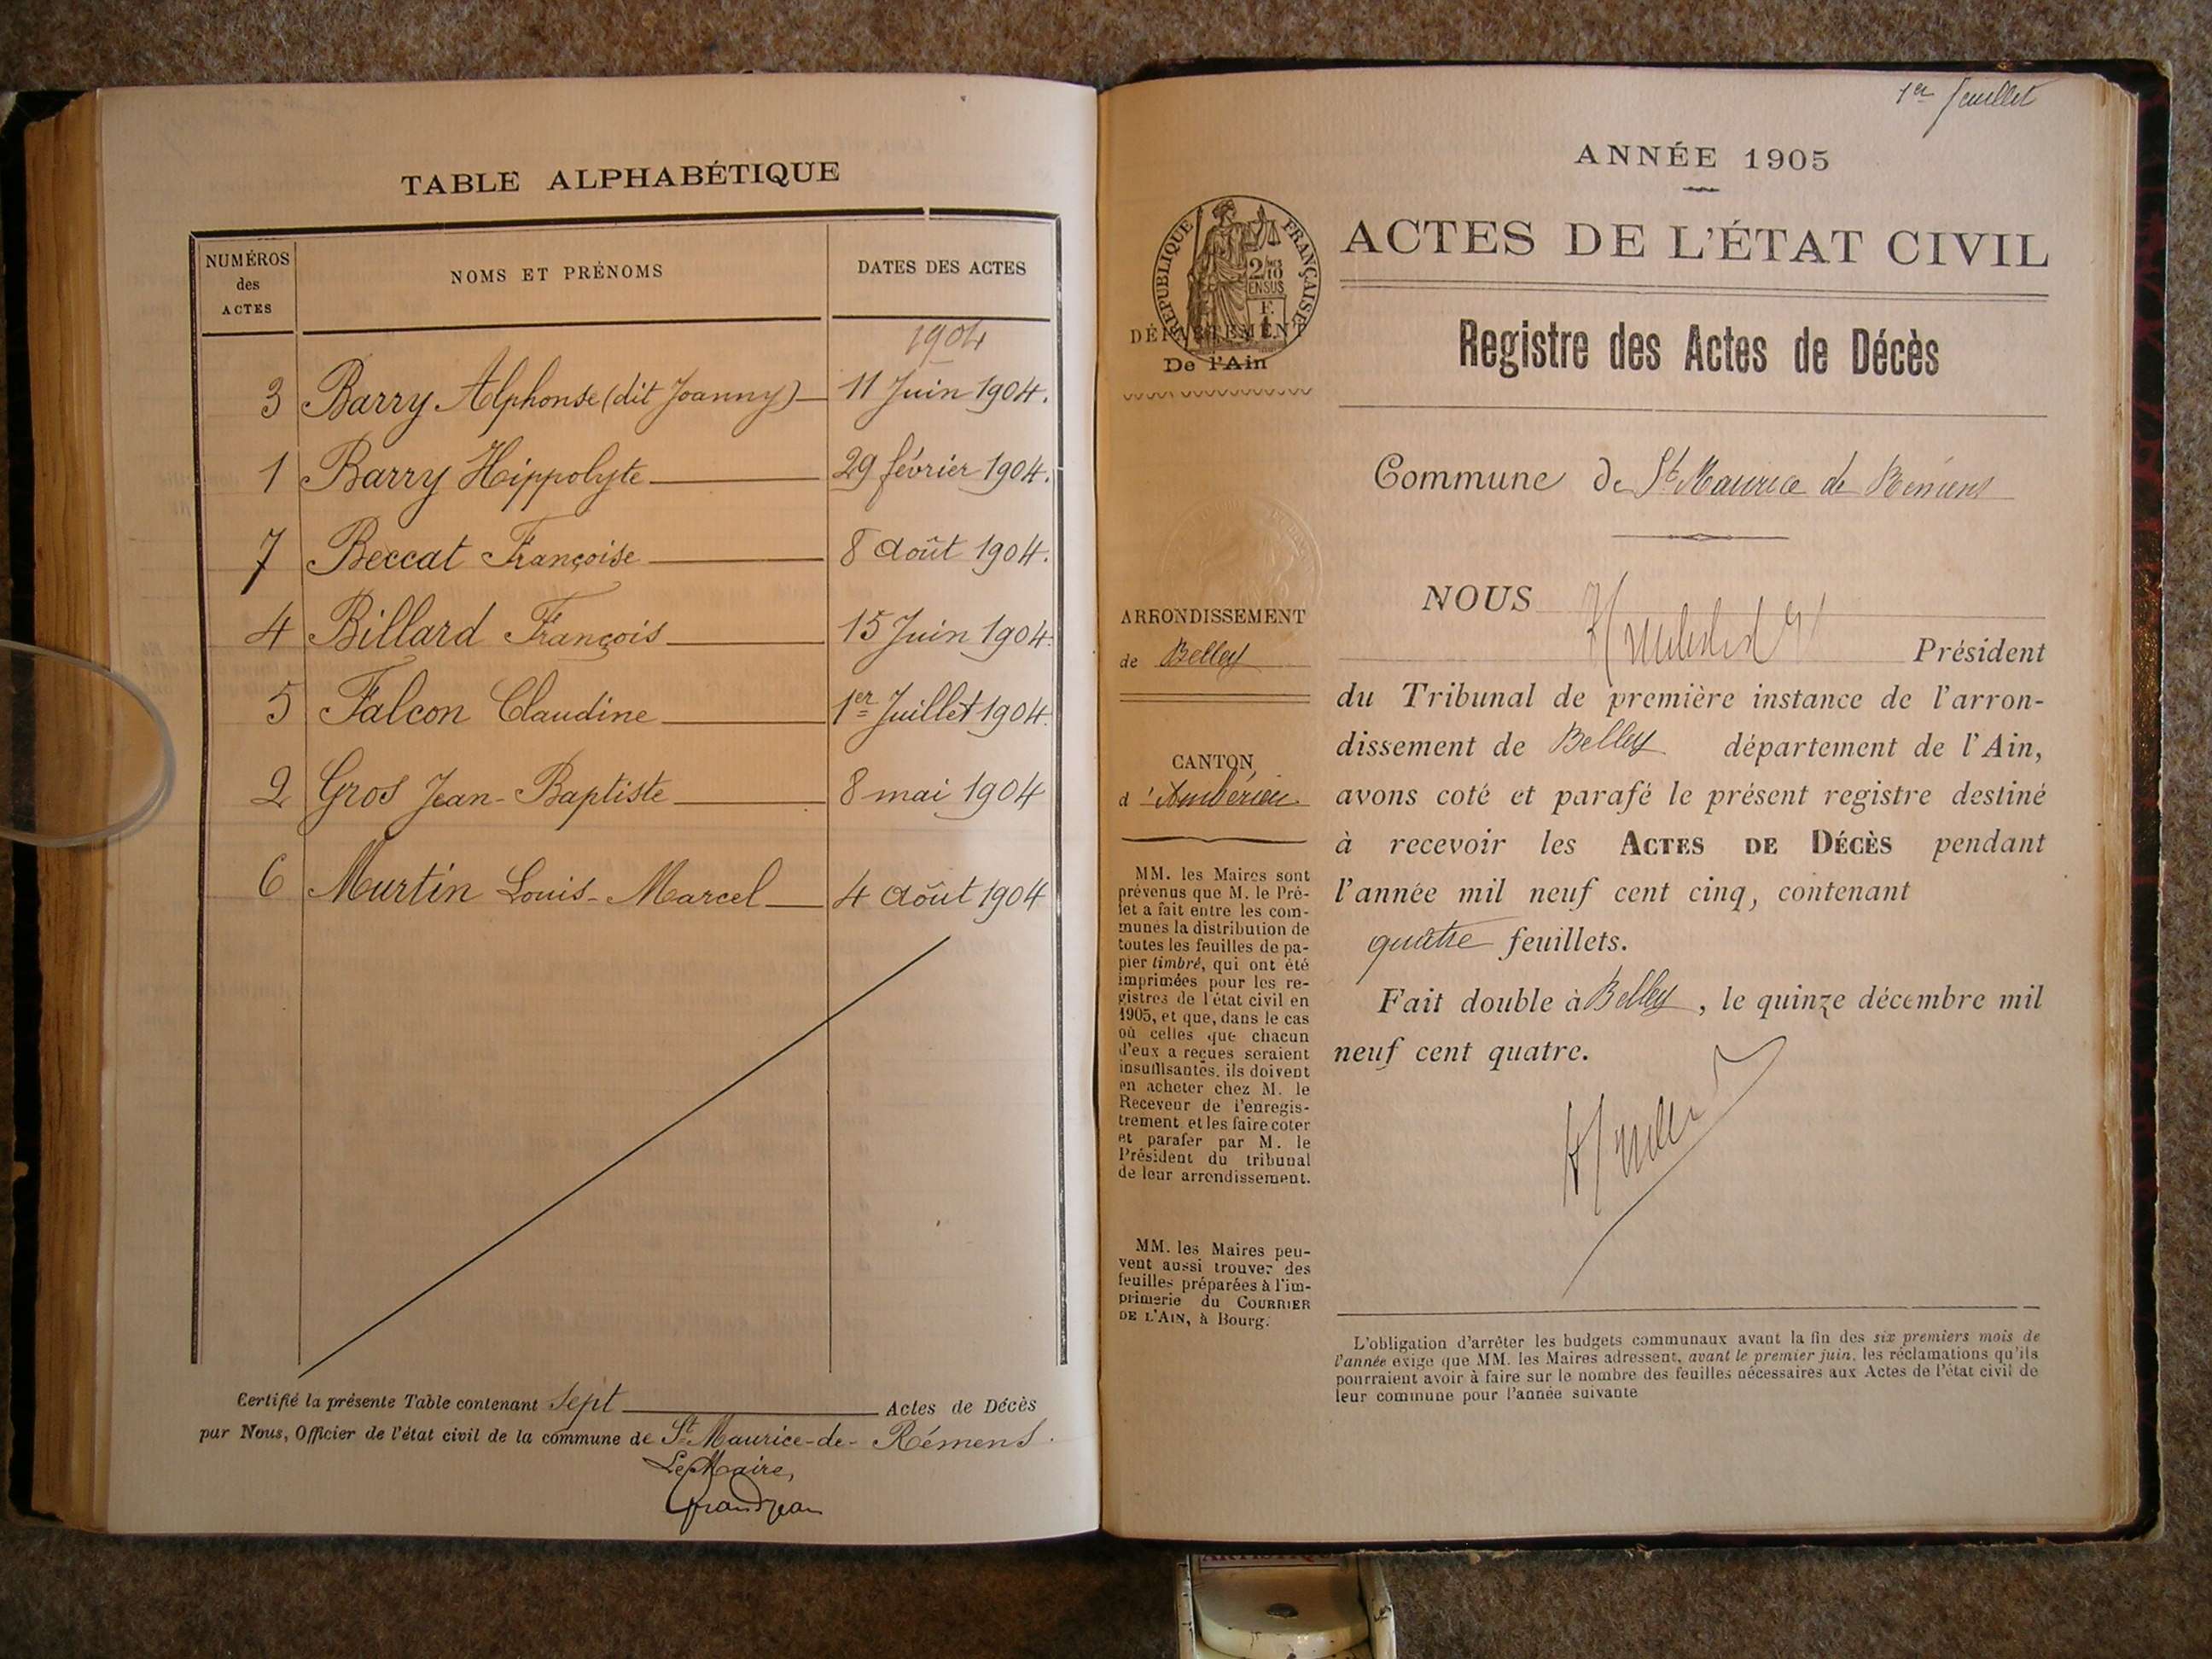 TABLE ALPHABÉTIQUE
NUMÉROS des ACTES
NOMS ET PRÉNOMS
DATES DES ACTES
1904
3 Barry Alphonse (dit Joanny) 11 Juin 1904.
1 Barry Hippolyte 29 février 1904.
7 Beccat Françoise 8 Août 1904.
4 Billard François 15 Juin 1904.
5 Falcon Claudine 1er Juillet 1904.
2 Gros Jean-Baptiste 8 mai 1904
6 Murtin Louis-Marcel 4 Août 1904
Certifié la présente Table contenant Sept Actes de Décès
par Nous, Officier de l'état civil de la commune de St Maurice-de-Rémens.
Le Maire,
Grandjean
1er feuillet
ANNÉE 1905
ACTES DE L'ÉTAT CIVIL
Registre des Actes de Décès
Commune de St Maurice de Rémens
RÉPUBLIQUE FRANÇAISE
2/10
EN SUS
F.
DÉPARTEMENT
De l'Ain
ARRONDISSEMENT
de Belley
CANTON
d'Ambérieu
MM. les Maires sont
prévenus que M. le Pré-
fet a fait entre les com-
munes la distribution de
toutes les feuilles de pa-
pier timbré, qui ont été
imprimées pour les re-
gistres de l'état civil en
1905, et que, dans le cas
où celles que chacun
d'eux a reçues seraient
insuffisantes, ils doivent
en acheter chez M. le
Receveur de l'enregis-
trement et les faire coter
et parafer par M. le
Président du tribunal
de leur arrondissement.
MM. les Maires peu-
vent aussi trouver des
feuilles préparées à l'im-
primerie du COURRIER
DE L'AIN, à Bourg.
NOUS
Président
du Tribunal de première instance de l'arron-
dissement de Belley département de l'Ain,
avons coté et parafé le présent registre destiné
à recevoir les ACTES DE DÉCÈS pendant
l'année mil neuf cent cinq, contenant
quatre feuillets.
Fait double à Belley, le quinze décembre mil
neuf cent quatre.
L'obligation d'arrêter les budgets communaux avant la fin des six premiers mois de
l'année exige que MM. les Maires adressent, avant le premier juin, les réclamations qu'ils
pourraient avoir à faire sur le nombre des feuilles nécessaires aux Actes de l'état civil de
leur commune pour l'année suivante